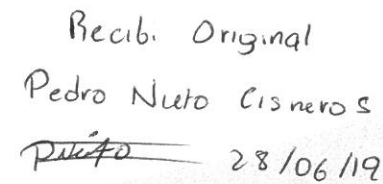 Recibi Original
Pedro Nieto Cisneros
PNieto 28/06/19